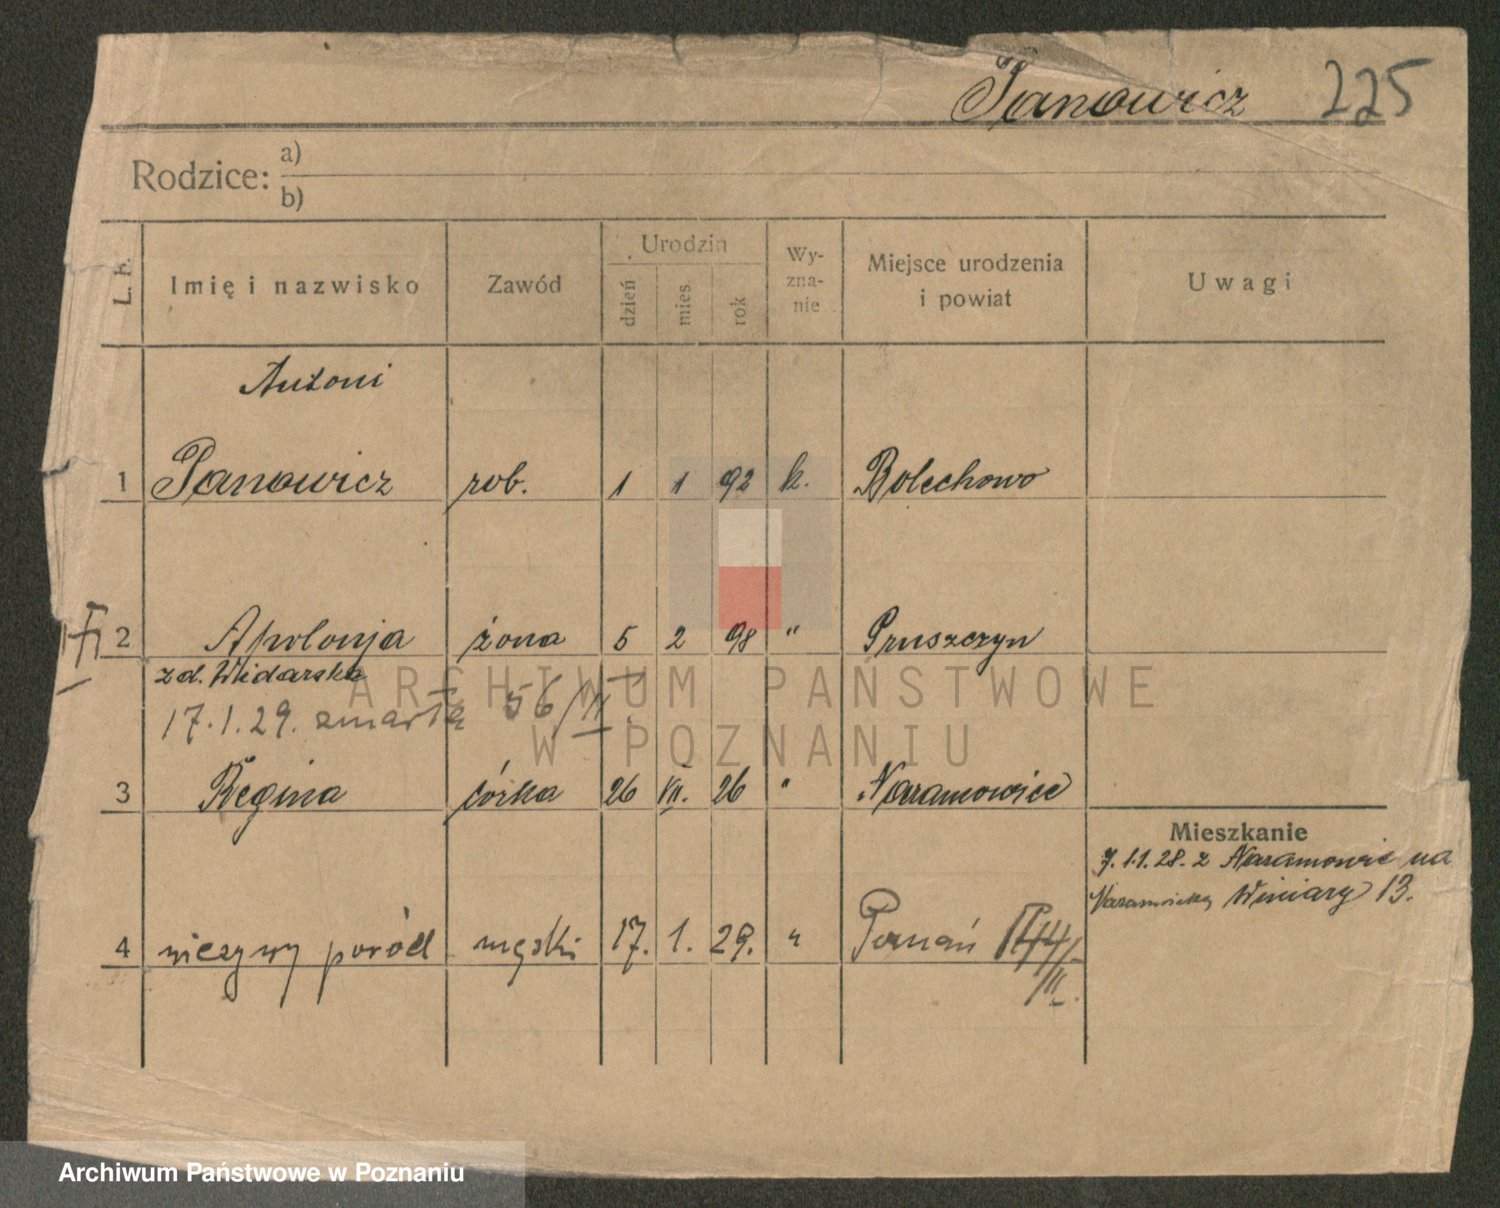 Panowicz 225
Rodzice: a)
b)
L. b. Imię i nazwisko Zawód Urodzin dzień mies. rok Wy-zna-nie Miejsce urodzenia i powiat Uwagi
Antoni
1 Panowicz rob. 1 1 92 k. Bolechowo
2 Apolonja żona 5 2 98 " Pruszczyn
zd. Widarska
17.1.29. zmarła 56/II
3 Regina córka 26 VII. 26 " Naramowice
Mieszkanie
7.11.28. z Naramowic na
Naramowicką Winiary 13.
4 nieżywy poród męski 17. 1. 29. " Poznań
ARCHIWUM PAŃSTWOWE
W POZNANIU
Archiwum Państwowe w Poznaniu